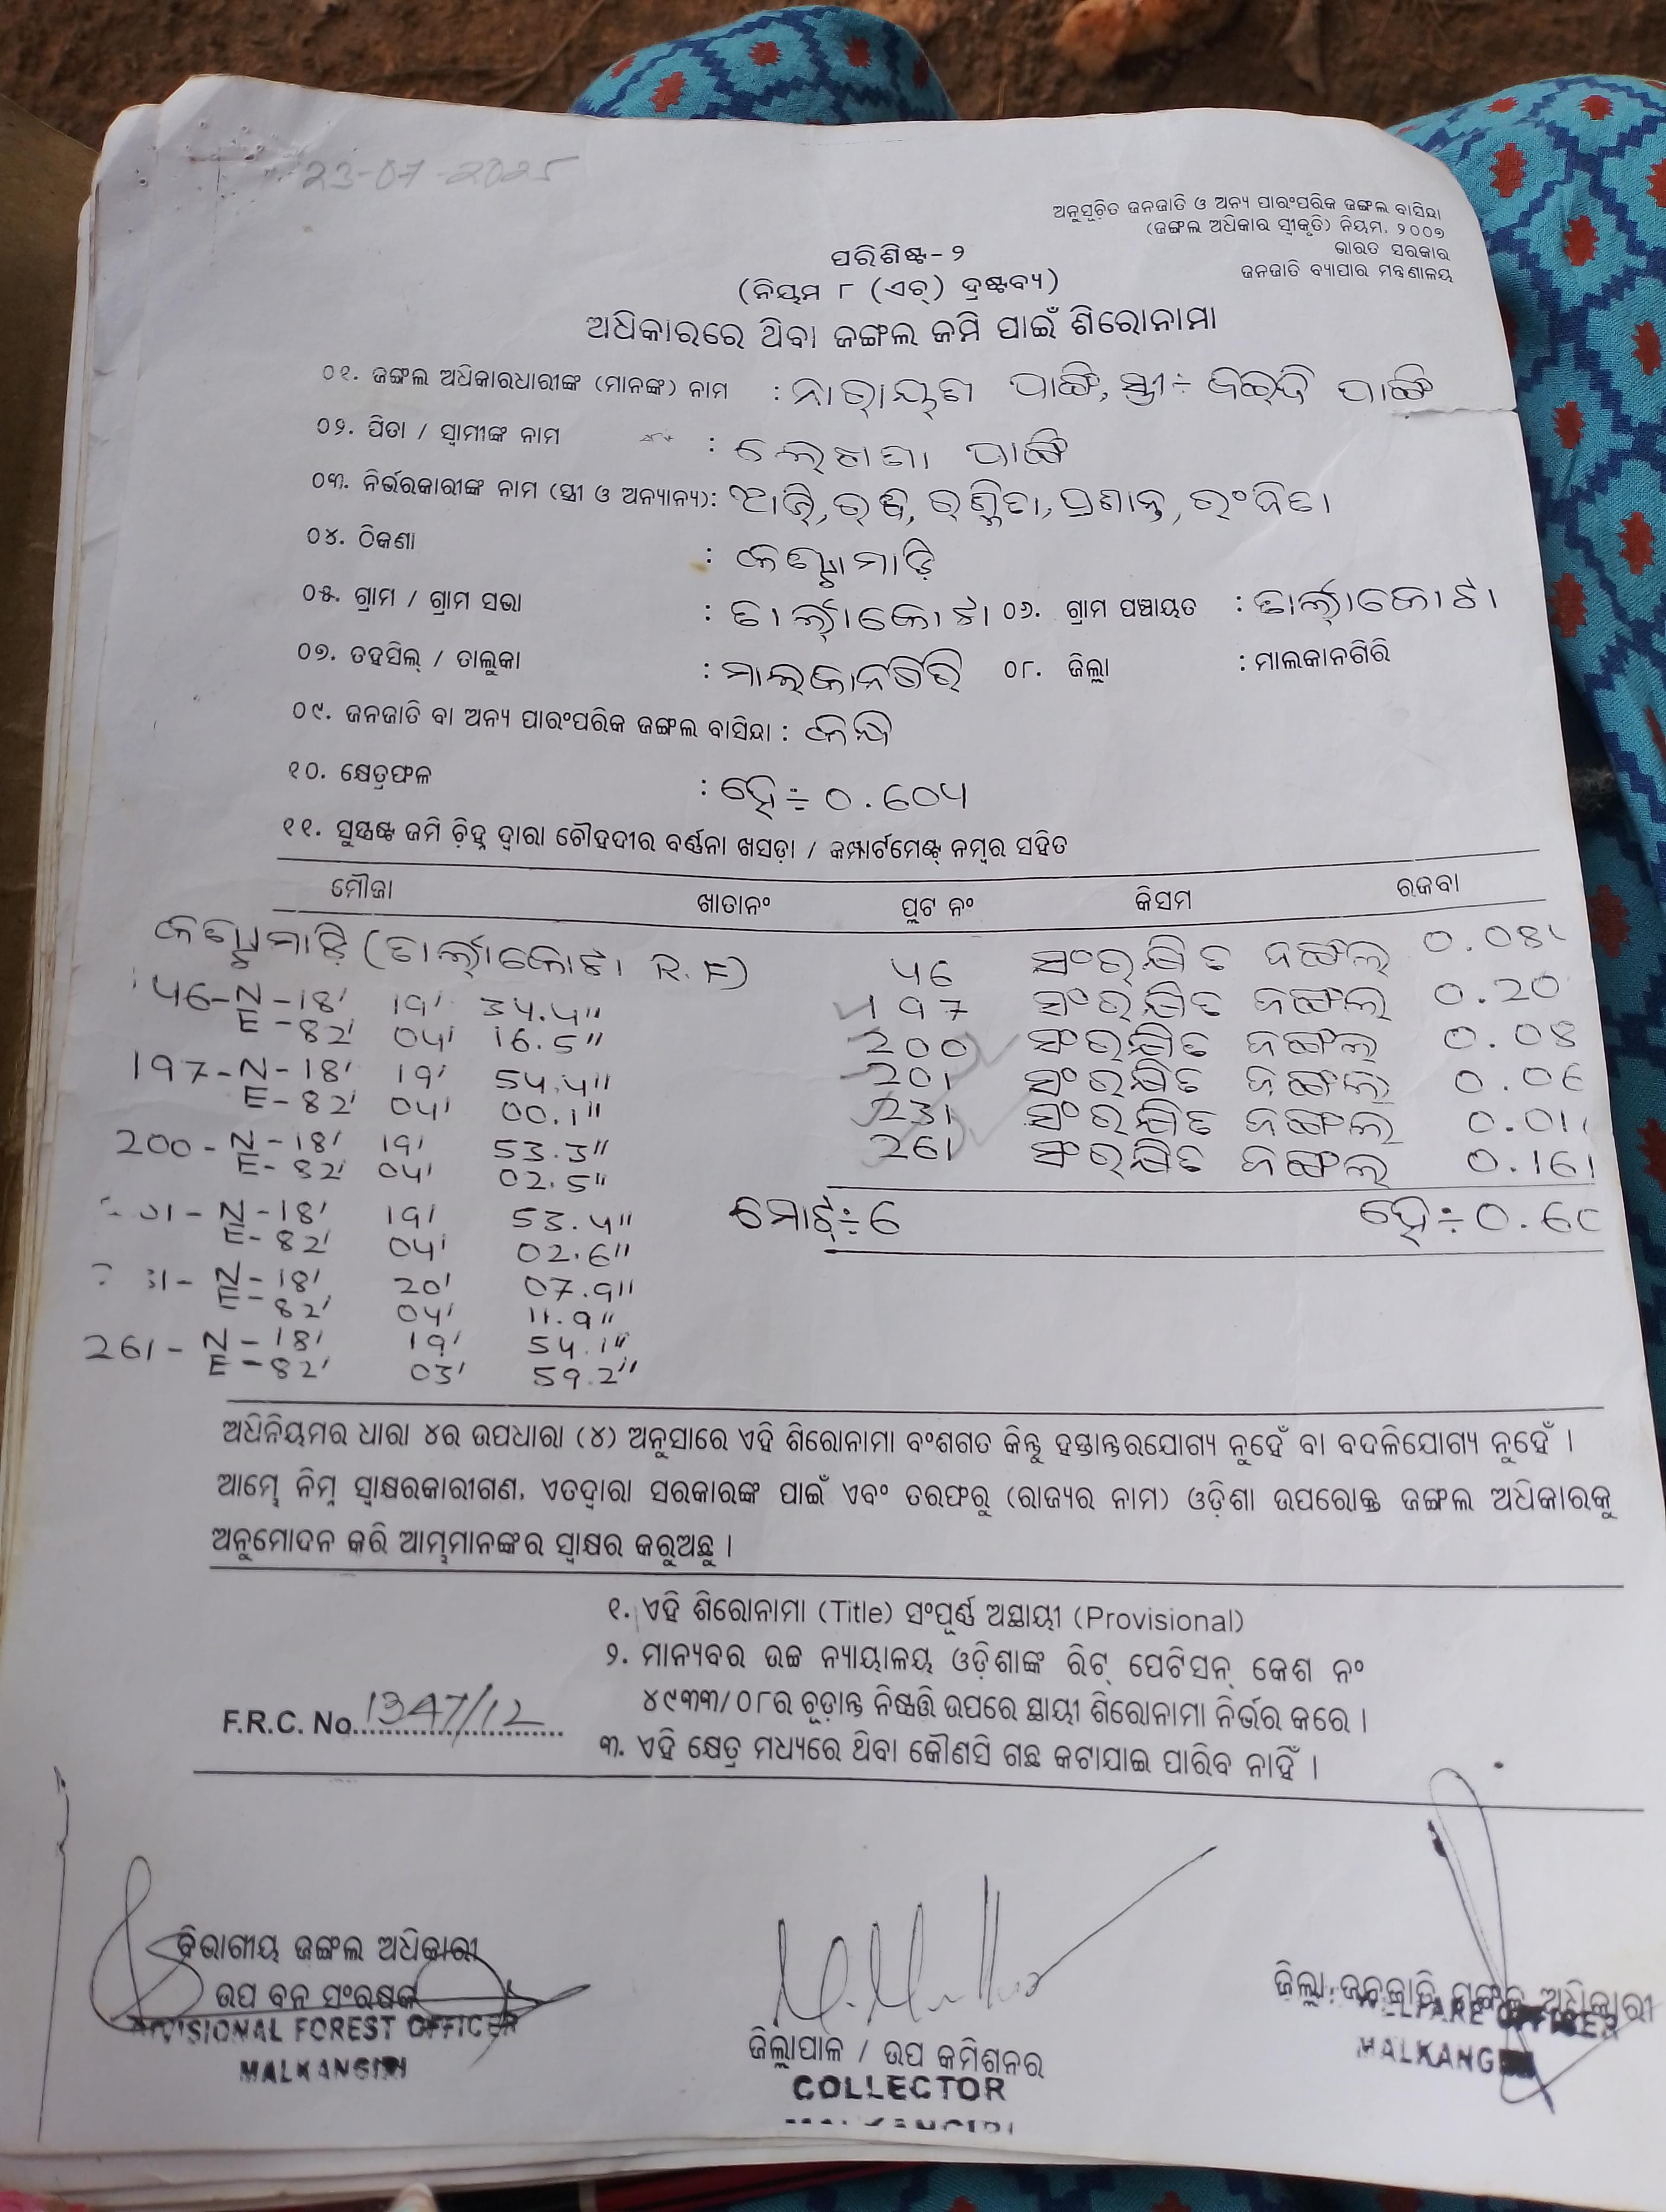 23-07-2025
ଅନୁସୂଚିତ ଜନଜାତି ଓ ଅନ୍ୟ ପାରଂପରିକ ଜଙ୍ଗଲ ବାସିନ୍ଦା
(ଜଙ୍ଗଲ ଅଧିକାର ସ୍ୱୀକୃତି) ନିୟମ, ୨୦୦୭
ଭାରତ ସରକାର
ଜନଜାତି ବ୍ୟାପାର ମନ୍ତ୍ରଣାଳୟ
ପରିଶିଷ୍ଟ- ୨
(ନିୟମ ୮ (ଏଚ୍) ଦ୍ରଷ୍ଟବ୍ୟ)
ଅଧିକାରରେ ଥିବା ଜଙ୍ଗଲ ଜମି ପାଇଁ ଶିରୋନାମା
୦୧. ଜଙ୍ଗଲ ଅଧିକାରଧାରୀଙ୍କ (ମାନଙ୍କ) ନାମ : ନାରାୟଣ ପାଙ୍ଗି, ସ୍ତ୍ରୀ÷ ପାଙ୍ଗି
୦୨. ପିତା / ସ୍ୱାମୀଙ୍କ ନାମ : ପାଙ୍ଗି
୦୩. ନିର୍ଭରକାରୀଙ୍କ ନାମ (ସ୍ତ୍ରୀ ଓ ଅନ୍ୟାନ୍ୟ): ପ୍ରଶାନ୍ତ,
୦୪. ଠିକଣା :
୦୫. ଗ୍ରାମ / ଗ୍ରାମ ସଭା : ତାର୍ଲାକୋଟା ୦୬. ଗ୍ରାମ ପଞ୍ଚାୟତ : ତାର୍ଲାକୋଟା
୦୭. ତହସିଲ୍ / ତାଲୁକା : ମାଲକାନଗିରି ୦୮. ଜିଲ୍ଲା : ମାଲକାନଗିରି
୦୯. ଜନଜାତି ବା ଅନ୍ୟ ପାରଂପରିକ ଜଙ୍ଗଲ ବାସିନ୍ଦା :
୧୦. କ୍ଷେତ୍ରଫଳ : ହେ÷ 0.605
୧୧. ସୁସ୍ପଷ୍ଟ ଜମି ଚିହ୍ନ ଦ୍ୱାରା ଚୌହଦୀର ବର୍ଣ୍ଣନା ଖସଡ଼ା / କମ୍ପାର୍ଟମେଣ୍ଟ୍ ନମ୍ବର ସହିତ
ମୌଜା ଖାତାନଂ ପ୍ଲଟ ନଂ କିସମ ରକବା
(ତାର୍ଲାକୋଟା R.F) 56 ସଂରକ୍ଷିତ ଜଙ୍ଗଲ
197 ସଂରକ୍ଷିତ ଜଙ୍ଗଲ 0.20
200 ସଂରକ୍ଷିତ ଜଙ୍ଗଲ 0.08
201 ସଂରକ୍ଷିତ ଜଙ୍ଗଲ
231 ସଂରକ୍ଷିତ ଜଙ୍ଗଲ
261 ସଂରକ୍ଷିତ ଜଙ୍ଗଲ 0.161
56-N-18' 19' 34.4"
E-82' 04' 16.5"
197-N-18' 19' 54.4"
E-82' 04' 00.1"
200-N-18' 19' 53.3"
E-82' 04' 02.5"
N-18' 19' 53.4"
E-82' 04' 02.6"
N-18' 20' 07.9"
E-82' 04' 11.9"
261-N-18' 19' 54.1"
E-82' 03' 59.2"
ମୋଟ୍÷6 ହେ÷
ଅଧିନିୟମର ଧାରା ୪ର ଉପଧାରା (୪) ଅନୁସାରେ ଏହି ଶିରୋନାମା ବଂଶଗତ କିନ୍ତୁ ହସ୍ତାନ୍ତରଯୋଗ୍ୟ ନୁହେଁ ବା ବଦଳିଯୋଗ୍ୟ ନୁହେଁ ।
ଆମ୍ଭେ ନିମ୍ନ ସ୍ୱାକ୍ଷରକାରୀଗଣ, ଏତଦ୍ୱାରା ସରକାରଙ୍କ ପାଇଁ ଏବଂ ତରଫରୁ (ରାଜ୍ୟର ନାମ) ଓଡ଼ିଶା ଉପରୋକ୍ତ ଜଙ୍ଗଲ ଅଧିକାରକୁ
ଅନୁମୋଦନ କରି ଆମ୍ଭମାନଙ୍କର ସ୍ୱାକ୍ଷର କରୁଅଛୁ ।
୧. ଏହି ଶିରୋନାମା (Title) ସଂପୂର୍ଣ୍ଣ ଅସ୍ଥାୟୀ (Provisional)
୨. ମାନ୍ୟବର ଉଚ୍ଚ ନ୍ୟାୟାଳୟ ଓଡ଼ିଶାଙ୍କ ରିଟ୍ ପେଟିସନ୍ କେଶ ନଂ
୪୯୩୩/୦୮ର ଚୂଡ଼ାନ୍ତ ନିଷ୍ପତ୍ତି ଉପରେ ସ୍ଥାୟୀ ଶିରୋନାମା ନିର୍ଭର କରେ ।
୩. ଏହି କ୍ଷେତ୍ର ମଧ୍ୟରେ ଥିବା କୌଣସି ଗଛ କଟାଯାଇ ପାରିବ ନାହିଁ ।
F.R.C. No. 1347/12
ବିଭାଗୀୟ ଜଙ୍ଗଲ ଅଧିକାରୀ
ଉପ ବନ ସଂରକ୍ଷକ
DIVISIONAL FOREST OFFICER
MALKANGIRI
ଜିଲ୍ଲାପାଳ / ଉପ କମିଶନର
COLLECTOR
MALKANGIRI
ଜିଲ୍ଲା ଜନଜାତି ମଙ୍ଗଳ ଅଧିକାରୀ
WELFARE OFFICER